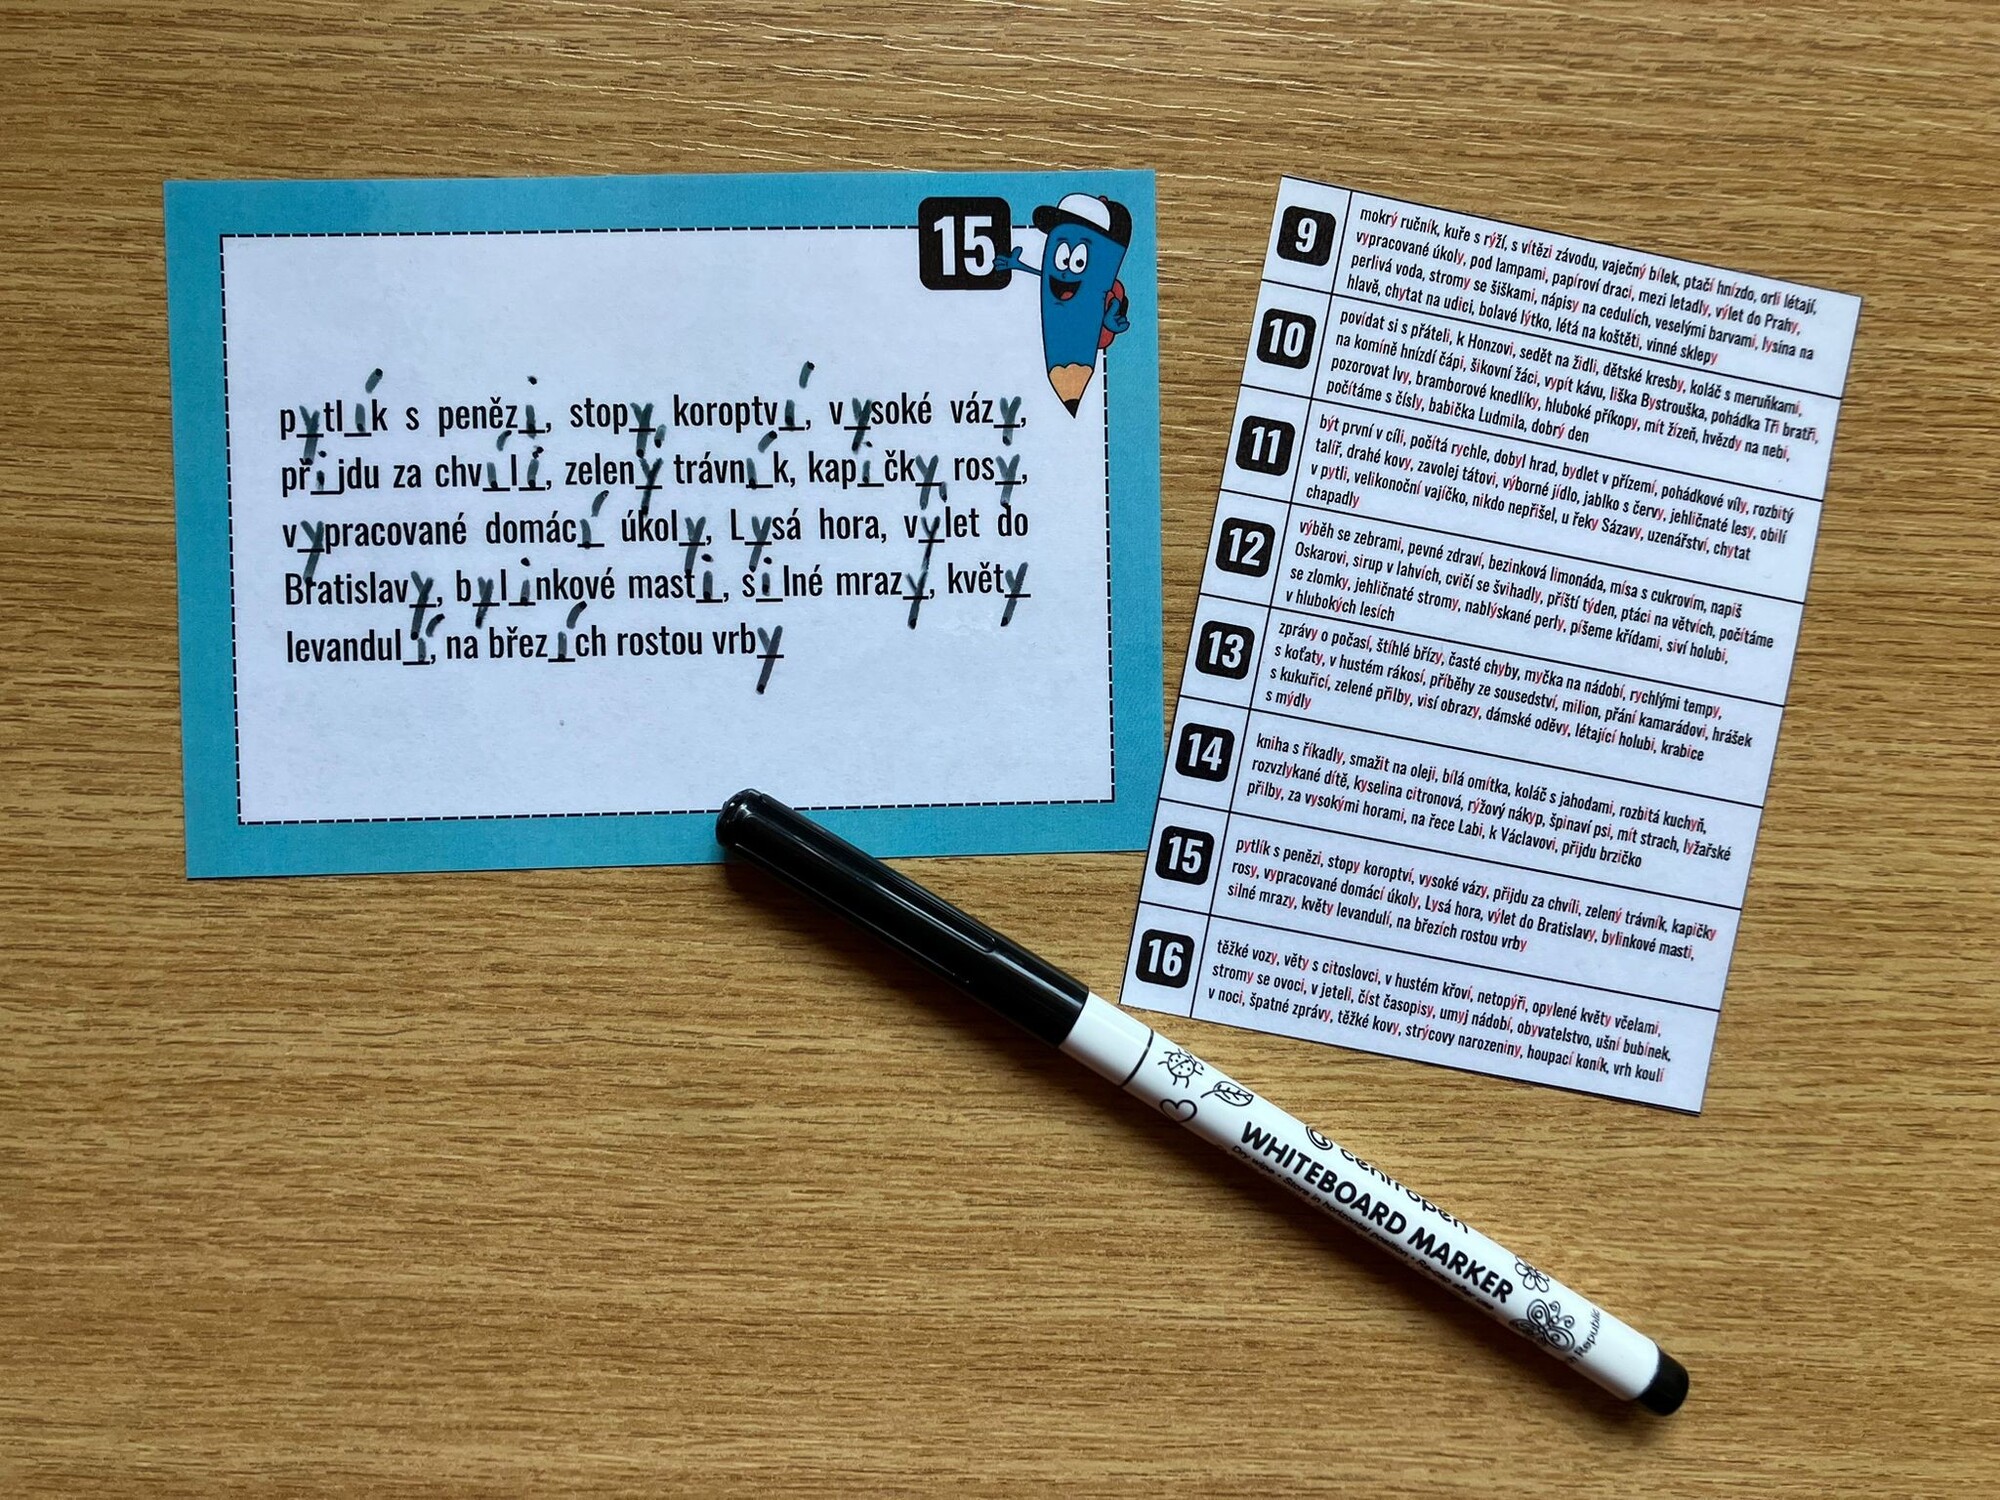 15
pytlík s penězi, stopy koroptví, vysoké vázy,
přijdu za chvíli, zelený trávník, kapičky rosy,
vypracované domácí úkoly, Lysá hora, výlet do
Bratislavy, bylinkové masti, silné mrazy, květy
levandulí, na březích rostou vrby
9
mokrý ručník, kuře s rýží, s vítězi závodu, vaječný bílek, ptačí hnízdo, orli létají,
vypracované úkoly, pod lampami, papíroví draci, mezi letadly, výlet do Prahy,
perlivá voda, stromy se šiškami, nápisy na cedulích, veselými barvami, lysina na
hlavě, chytat na udici, bolavé lýtko, létá na koštěti, vinné sklepy
10
povídat si s přáteli, k Honzovi, sedět na židli, dětské kresby, koláč s meruňkami,
na komíně hnízdí čápi, šikovní žáci, vypít kávu, liška Bystrouška, pohádka Tři bratři,
pozorovat lvy, bramborové knedlíky, hluboké příkopy, mít žízeň, hvězdy na nebi,
počítáme s čísly, babička Ludmila, dobrý den
11
být první v cíli, počítá rychle, dobyl hrad, bydlet v přízemí, pohádkové víly, rozbitý
talíř, drahé kovy, zavolej tátovi, výborné jídlo, jablko s červy, jehličnaté lesy, obilí
v pytli, velikonoční vajíčko, nikdo nepřišel, u řeky Sázavy, uzenářství, chytat
chapadly
12
výběh se zebrami, pevné zdraví, bezinková limonáda, mísa s cukrovím, napiš
Oskarovi, sirup v lahvích, cvičí se švihadly, příští týden, ptáci na větvích, počítáme
se zlomky, jehličnaté stromy, nablýskané perly, píšeme křídami, siví holubi,
v hlubokých lesích
13
zprávy o počasí, štíhlé břízy, časté chyby, myčka na nádobí, rychlými tempy,
s koťaty, v hustém rákosí, příběhy ze sousedství, milion, přání kamarádovi, hrášek
s kukuřicí, zelené přilby, visí obrazy, dámské oděvy, létající holubi, krabice
s mýdly
14
kniha s říkadly, smažit na oleji, bílá omítka, koláč s jahodami, rozbitá kuchyň,
rozvzlykané dítě, kyselina citronová, rýžový nákyp, špinaví psi, mít strach, lyžařské
přilby, za vysokými horami, na řece Labi, k Václavovi, přijdu brzičko
15
pytlík s penězi, stopy koroptví, vysoké vázy, přijdu za chvíli, zelený trávník, kapičky
rosy, vypracované domácí úkoly, Lysá hora, výlet do Bratislavy, bylinkové masti,
silné mrazy, květy levandulí, na březích rostou vrby
16
těžké vozy, věty s citoslovci, v hustém křoví, netopýři, opylené květy včelami,
stromy se ovoci, v jeteli, číst časopisy, umyj nádobí, obyvatelstvo, ušní bubínek,
v noci, špatné zprávy, těžké kovy, strýcovy narozeniny, houpací koník, vrh koulí
centropen
WHITEBOARD MARKER
Dry wipe • Store in horizontal position •
Republic